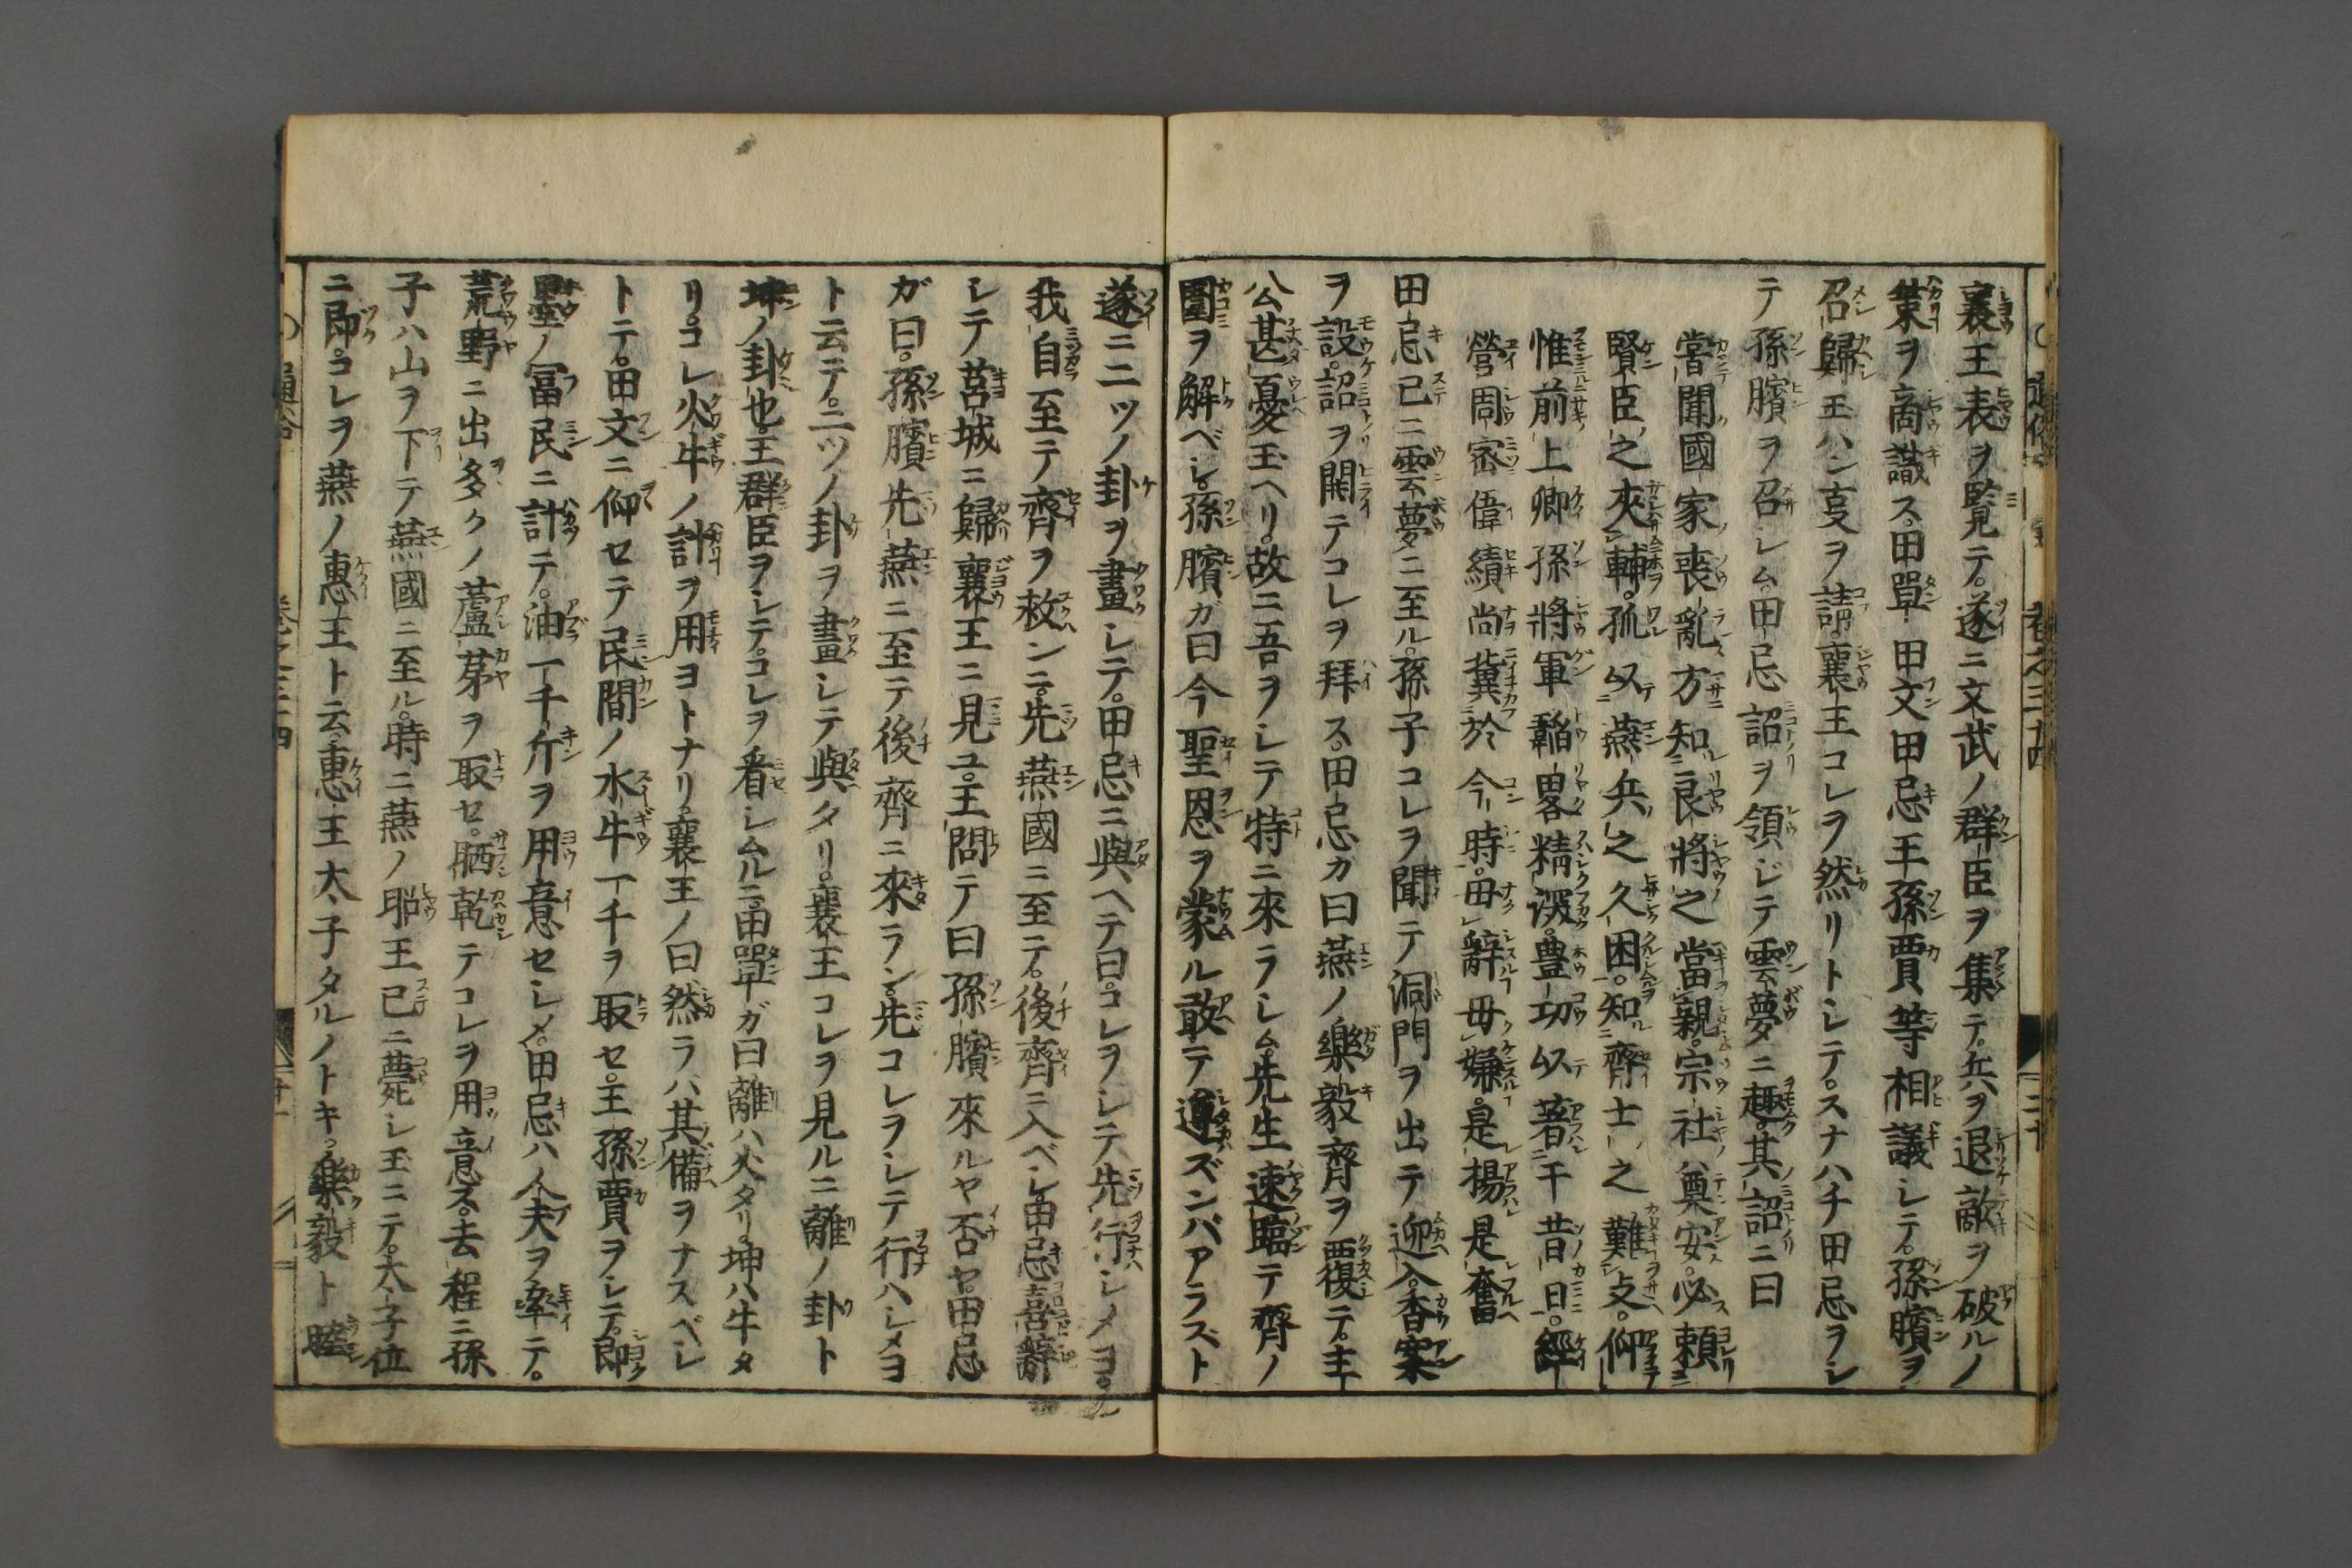 襄王表ヲ覧テ。遂ニ文武ノ群臣ヲ集テ。兵ヲ退敵ヲ破ルノ
策ヲ商議ス。田單田文田忌王孫賈等相議シテ。孫臏ヲ
召歸玉ハン叓ヲ請。襄王コレヲ然リトシテ。スナハチ田忌ヲシ
テ孫臏ヲ召シム。田忌詔ヲ領ジテ雲夢ニ趣。其詔ニ曰
甞聞國家喪亂。方知良將之當親。宗社奠安。必頼
賢臣之夾輔。孤以燕兵之久困。知齊士之難支。仰
惟前上卿孫將軍韜畧精深。豊功以著于昔日。經
營周宻偉績尚冀於今時。毋辭毋嫌。是揚是奮
田忌已ニ雲夢ニ至ル。孫子コレヲ聞テ洞門ヲ出テ迎入。香案
ヲ設。詔ヲ開テコレヲ拜ス。田忌カ曰燕ノ樂毅齊ヲ覆テ。主
公甚憂玉ヘリ。故ニ吾ヲシテ特ニ來ラシム。先生速臨テ齊ノ
圍ヲ解ベシ。孫臏ガ曰今聖恩ヲ蒙ル敢テ遵ズンバアラズト
遂ニ二ツノ卦ヲ畫シテ。田忌ニ與ヘテ曰。コレヲシテ先行シメヨ。
我自至テ齊ヲ救ンニ。先燕國ニ至テ。後齊ニ入ベシ。田忌喜辭
シテ莒城ニ歸襄王ニ見ユ。王問テ曰孫臏來ルヤ否ヤ。田忌
ガ曰。孫臏先燕ニ至テ後齊ニ來ラン。先コレヲシテ行ハシメヨ
ト云テ。二ツノ卦ヲ畫シテ與タリ。襄王コレヲ見ルニ離ノ卦ト
坤ノ卦也。王群臣ヲシテ。コレヲ看シムルニ。田單ガ曰離ハ火タリ。坤ハ牛タ
リ。コレ火牛ノ計ヲ用ヨトナリ。襄王ノ曰然ラバ其備ヲナスベシ
トテ。田文ニ仰セテ民間ノ水牛一千ヲ取セ。王孫賈ヲシテ。即
墨ノ冨民ニ計テ。油一千斤ヲ用意セシメ。田忌ハ人夫ヲ牽テ。
荒野ニ出多クノ蘆茅ヲ取セ。晒乾テコレヲ用意ス。去程ニ孫
子ハ山ヲ下テ燕國ニ至ル。時ニ燕ノ昭王已ニ薨シ玉ニテ。太子位
ニ即。コレヲ燕ノ惠王ト云。惠王太子タルノトキ。樂毅ト睦